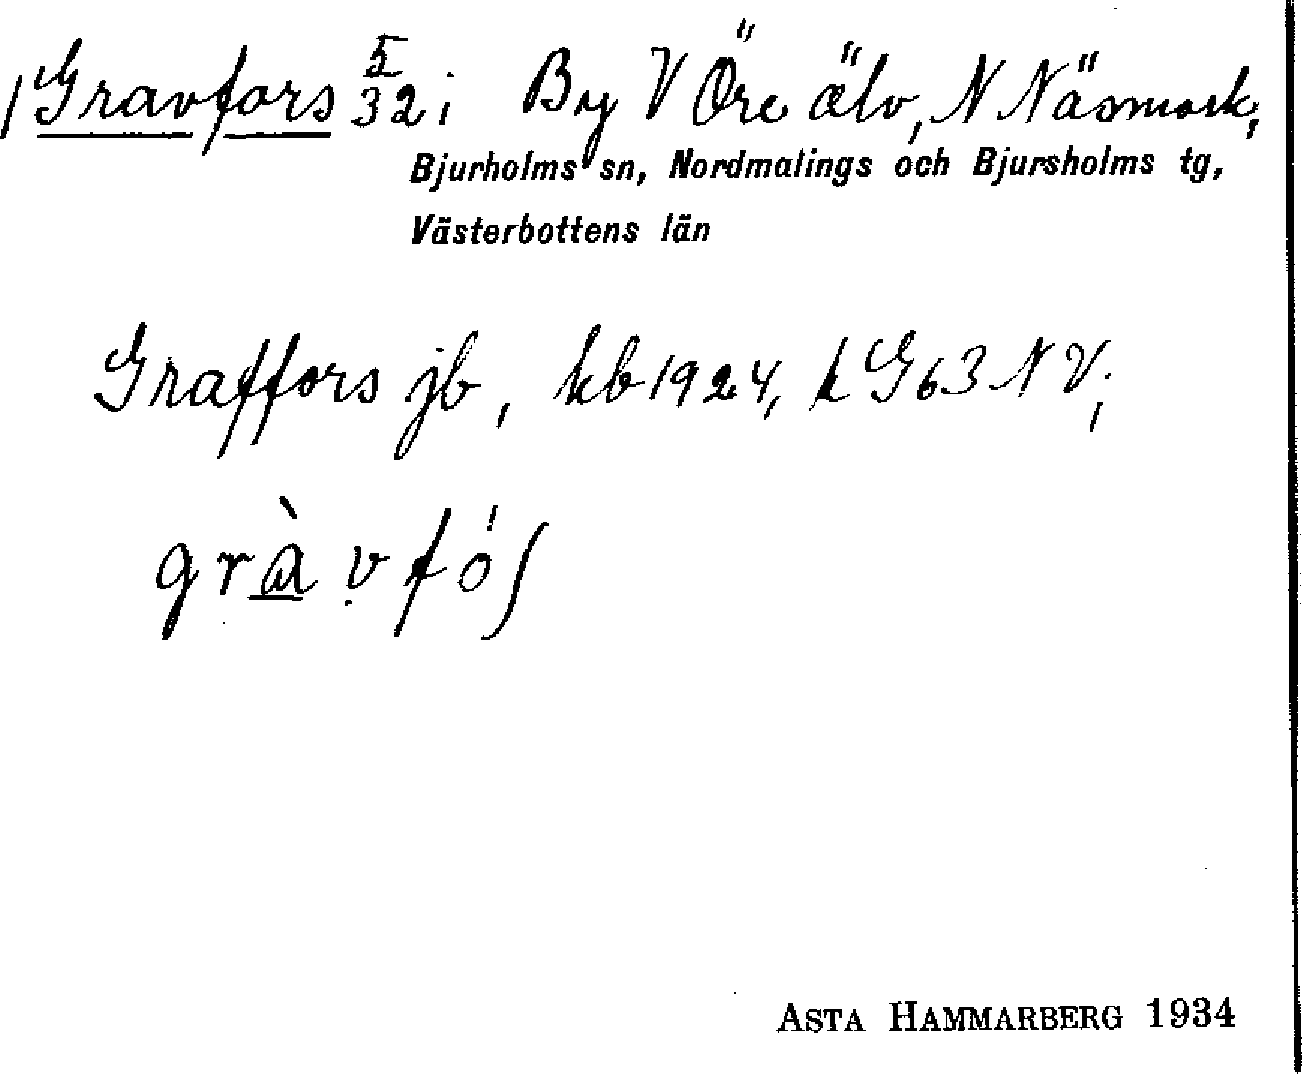 Gravfors 5/32; By V Öre älv, N Näsmark,
Bjurholms sn, Nordmalings och Bjursholms tg,
Västerbottens län
Graffors jb, kb 1924, k G63 NV;
gràvfós
ASTA HAMMARBERG 1934